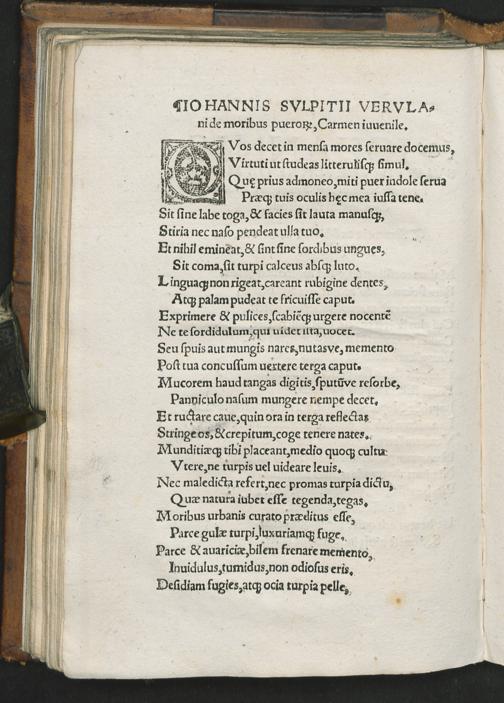 ¶IOHANNIS SVLPITII VERVLA-
ni de moribus puerorꝝ, Carmen iuuenile.
QVos decet in mensa mores seruare docemus,
Virtuti ut studeas litterulisqꝫ simul.
Quę prius admoneo, miti puer indole serua
Præqꝫ tuis oculis hęc mea iussa tene.
Sit sine labe toga, & facies sit lauta manusqꝫ,
Stiria nec naso pendeat ulla tuo.
Et nihil emineat, & sint sine sordibus ungues,
Sit coma, sit turpi calceus absqꝫ luto.
Linguaqꝫ non rigeat, careant rubigine dentes,
Atqꝫ palam pudeat te fricuisse caput.
Exprimere & pulices, scabiēqꝫ urgere nocentē
Ne te sordidulum, qui uidet ista, uocet.
Seu spuis aut mungis nares, nutasve, memento
Post tua concussum uertere terga caput.
Mucorem haud tangas digitis, sputūve resorbe,
Panniculo nasum mungere nempe decet.
Et ructare caue, quin ora in terga reflectas
Stringe os, & crepitum, coge tenere nates.
Munditiæqꝫ tibi placeant, medio quoqꝫ cultu
Vtere, ne turpis uel uideare leuis.
Nec maledicta refert, nec promas turpia dictu,
Quæ natura iubet esse tegenda, tegas.
Moribus urbanis curato præditus esse,
Parce gulæ turpi, luxuriamqꝫ fuge.
Parce & auariciæ, bilem frenare memento,
Inuidulus, tumidus, non odiosus eris.
Desidiam fugies, atqꝫ ocia turpia pelle,